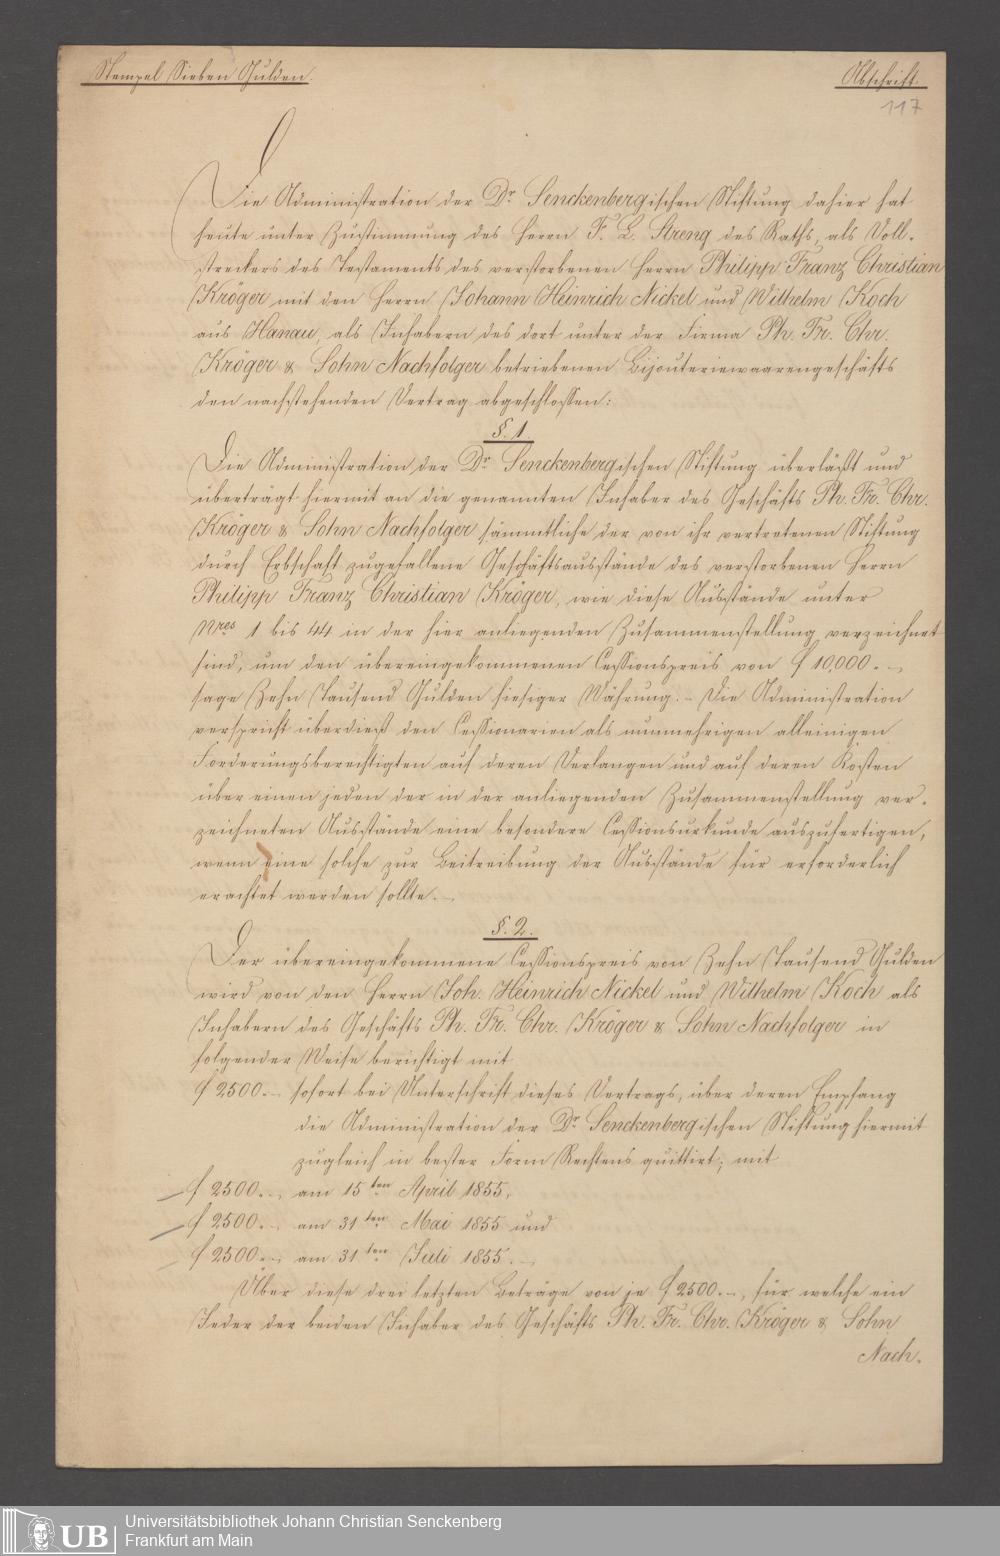 Stempel Sieben Gulden.
Abschrift.
117
Die Administration der Dr. Senckenbergischen Stiftung dahier hat
heute unter Zustimmung des Herrn F. L. Streng des Raths, als Voll-
streckers des Testaments des verstorbenen Herrn Philipp Franz Christian
Kröger mit den Herrn Johann Heinrich Nickel und Wilhelm Koch
aus Hanau, als Inhabern des dort unter der Firma Ph. Fr. Chr.
Kröger & Sohn Nachfolger betriebenen Bijouteriewaarengeschäfts
den nachstehenden Vertrag abgeschlossen:
§. 1.
Die Administration der Dr. Senckenbergischen Stiftung überläßt und
überträgt hiermit an die genannten Inhaber des Geschäfts Ph. Fr. Chr.
Kröger & Sohn Nachfolger sämmtliche der von ihr vertretenen Stiftung
durch Erbschaft zugefallene Geschäftsausstände des verstorbenen Herrn
Philipp Franz Christian Kröger, wie diese Ausstände unter
Nres 1 bis 44 in der hier anliegenden Zusammenstellung verzeichnet
sind, um den übereingekommenen Cessionspreis von f 10,000.–
sage Zehn Tausend Gulden hiesiger Währung. – Die Administration
verspricht überdieß den Cessionarien als nunmehrigen alleinigen
Forderungsberechtigten auf deren Verlangen und auf deren Kosten
über einen jeden der in der anliegenden Zusammenstellung ver-
zeichneten Ausstände eine besondere Cessionsurkunde auszufertigen,
wenn eine solche zur Beitreibung der Ausstände für erforderlich
erachtet werden sollte. –
§. 2.
Der übereingekommene Cessionspreis von Zehn Tausend Gulden
wird von den Herrn Joh. Heinrich Nickel und Wilhelm Koch als
Inhabern des Geschäfts Ph. Fr. Chr. Kröger & Sohn Nachfolger in
folgender Weise berichtigt mit
f 2500.– sofort bei Unterschrift dieses Vertrags, über deren Empfang
die Administration der Dr. Senckenbergischen Stiftung hiermit
zugleich in bester Form Rechtens quittirt; mit
f 2500.–, am 15ten April 1855,
f 2500.–, am 31ten Mai 1855 und
f 2500.–, am 31ten Juli 1855.–
Über diese drei letzten Beträge von je f 2500.–, für welche ein
Jeder der beiden Inhaber des Geschäfts Ph. Fr. Chr. Kröger & Sohn
Nach-
UB
Universitätsbibliothek Johann Christian Senckenberg
Frankfurt am Main